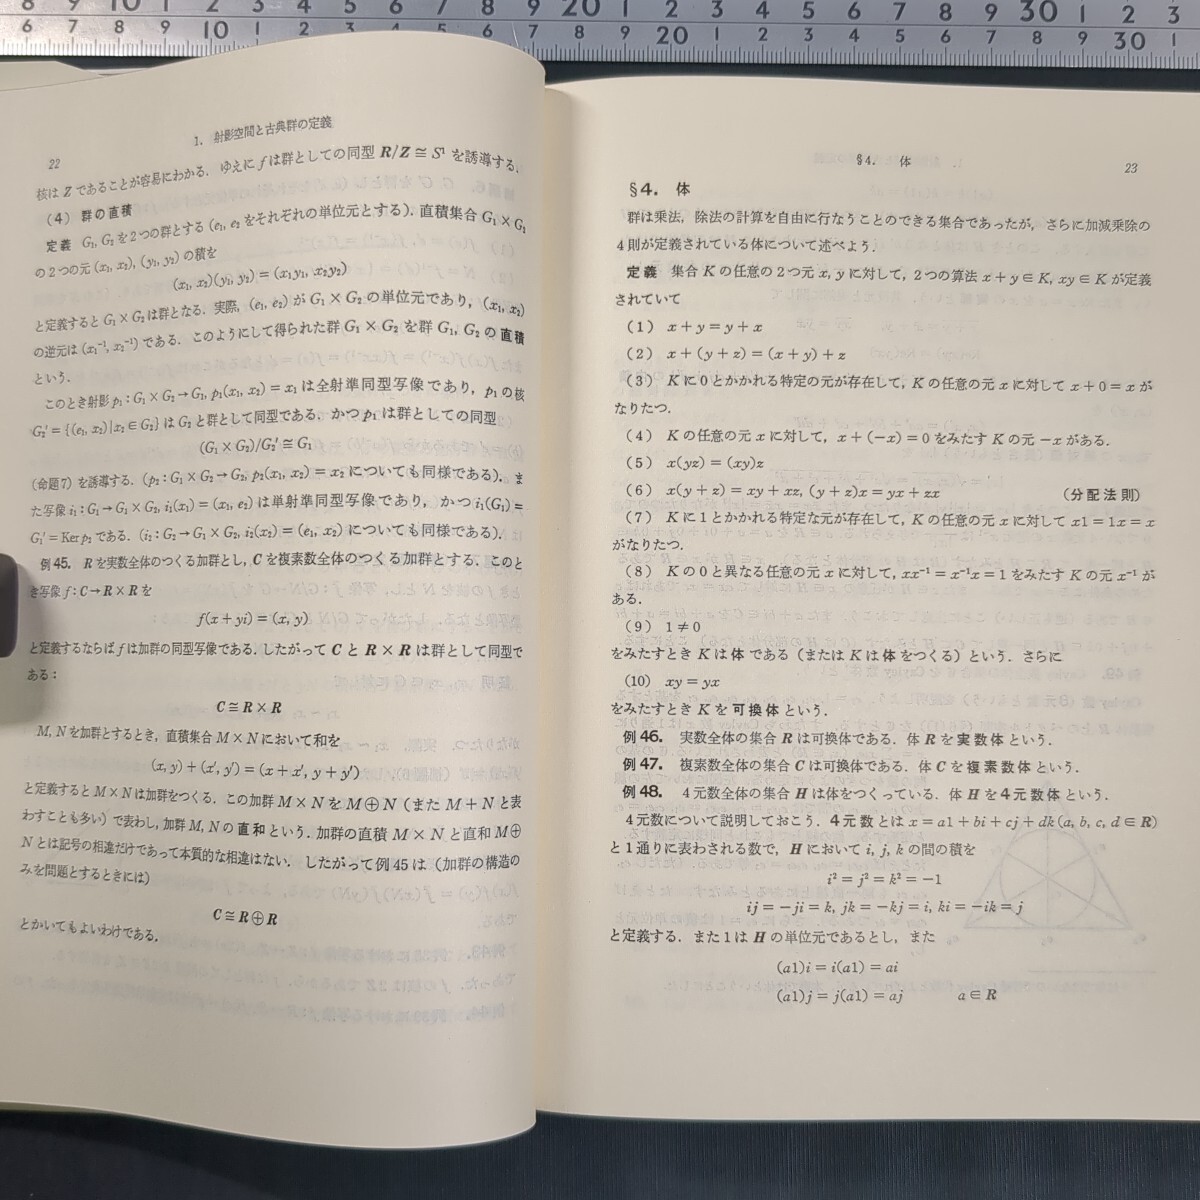 8 9 10 1 2 3 4 5 6 7 8 9 20 1 2 3 4 5 6 7 8 9 30 1 2 3
6 7 8 9 10 1 2 3 4 5 6 7 8 9 20 1 2 3 4 5 6 7 8 9 30 1
22
1. 射影空間と古典群の定義
核は Z であることが容易にわかる. ゆえに f は群としての同型 R/Z ≅ S¹ を誘導する.
(4) 群の直積
定義 G₁, G₂ を2つの群とする (e₁, e₂ をそれぞれの単位元とする). 直積集合 G₁×G₂
の2つの元 (x₁, x₂), (y₁, y₂) の積を
(x₁, x₂)(y₁, y₂) = (x₁y₁, x₂y₂)
と定義すると G₁×G₂ は群となる. 実際, (e₁, e₂) が G₁×G₂ の単位元であり, (x₁, x₂)
の逆元は (x₁⁻¹, x₂⁻¹) である. このようにして得られた群 G₁×G₂ を群 G₁, G₂ の直積
という.
このとき射影 p₁ : G₁×G₂→G₁, p₁(x₁, x₂) = x₁ は全射準同型写像であり, p₁ の核
G₂′ = {(e₁, x₂)|x₂∈G₂} は G₂ と群として同型である. かつ p₁ は群としての同型
(G₁×G₂)/G₂′ ≅ G₁
(命題7) を誘導する. (p₂ : G₁×G₂→G₂, p₂(x₁, x₂) = x₂ についても同様である). ま
た写像 i₁ : G₁→G₁×G₂, i₁(x₁) = (x₁, e₂) は単射準同型写像であり, かつ i₁(G₁) =
G₁′ = Ker p₂ である. (i₂ : G₂→G₁×G₂, i₂(x₂) = (e₁, x₂) についても同様である).
例 45. R を実数全体のつくる加群とし, C を複素数全体のつくる加群とする. このと
き写像 f : C→R×R を
f(x+yi) = (x, y)
と定義するならば f は加群の同型写像である. したがって C と R×R は群として同型で
ある:
C ≅ R×R
M, N を加群とするとき, 直積集合 M×N において和を
(x, y)+(x′, y′) = (x+x′, y+y′)
と定義すると M×N は加群をつくる. この加群 M×N を M⊕N (また M+N と表
わすことも多い) で表わし, 加群 M, N の直和という. 加群の直積 M×N と直和 M⊕
N とは記号の相違だけであって本質的な相違はない. したがって例 45 は (加群の構造の
みを問題とするときには)
C ≅ R⊕R
とかいてもよいわけである.
§4. 体
23
§4. 体
群は乗法, 除法の計算を自由に行なうことのできる集合であったが, さらに加減乗除の
4則が定義されている体について述べよう.
定義 集合 K の任意の2つ元 x, y に対して, 2つの算法 x+y∈K, xy∈K が定義
されていて
(1) x+y = y+x
(2) x+(y+z) = (x+y)+z
(3) K に0とかかれる特定の元が存在して, K の任意の元 x に対して x+0 = x が
なりたつ.
(4) K の任意の元 x に対して, x+(−x) = 0 をみたす K の元 −x がある.
(5) x(yz) = (xy)z
(6) x(y+z) = xy+xz, (y+z)x = yx+zx (分配法則)
(7) K に1とかかれる特定な元が存在して, K の任意の元 x に対して x1 = 1x = x
がなりたつ.
(8) K の0と異なる任意の元 x に対して, xx⁻¹ = x⁻¹x = 1 をみたす K の元 x⁻¹ が
ある.
(9) 1≠0
をみたすとき K は体である (または K は体をつくる) という. さらに
(10) xy = yx
をみたすとき K を可換体という.
例 46. 実数全体の集合 R は可換体である. 体 R を実数体という.
例 47. 複素数全体の集合 C は可換体である. 体 C を複素数体という.
例 48. 4元数全体の集合 H は体をつくっている. 体 H を4元数体という.
4元数について説明しておこう. 4元数とは x = a1+bi+cj+dk(a, b, c, d∈R)
と1通りに表わされる数で, H において i, j, k の間の積を
i² = j² = k² = −1
ij = −ji = k, jk = −kj = i, ki = −ik = j
と定義する. また1は H の単位元であるとし, また
(a1)i = i(a1) = ai
(a1)j = j(a1) = aj a∈R